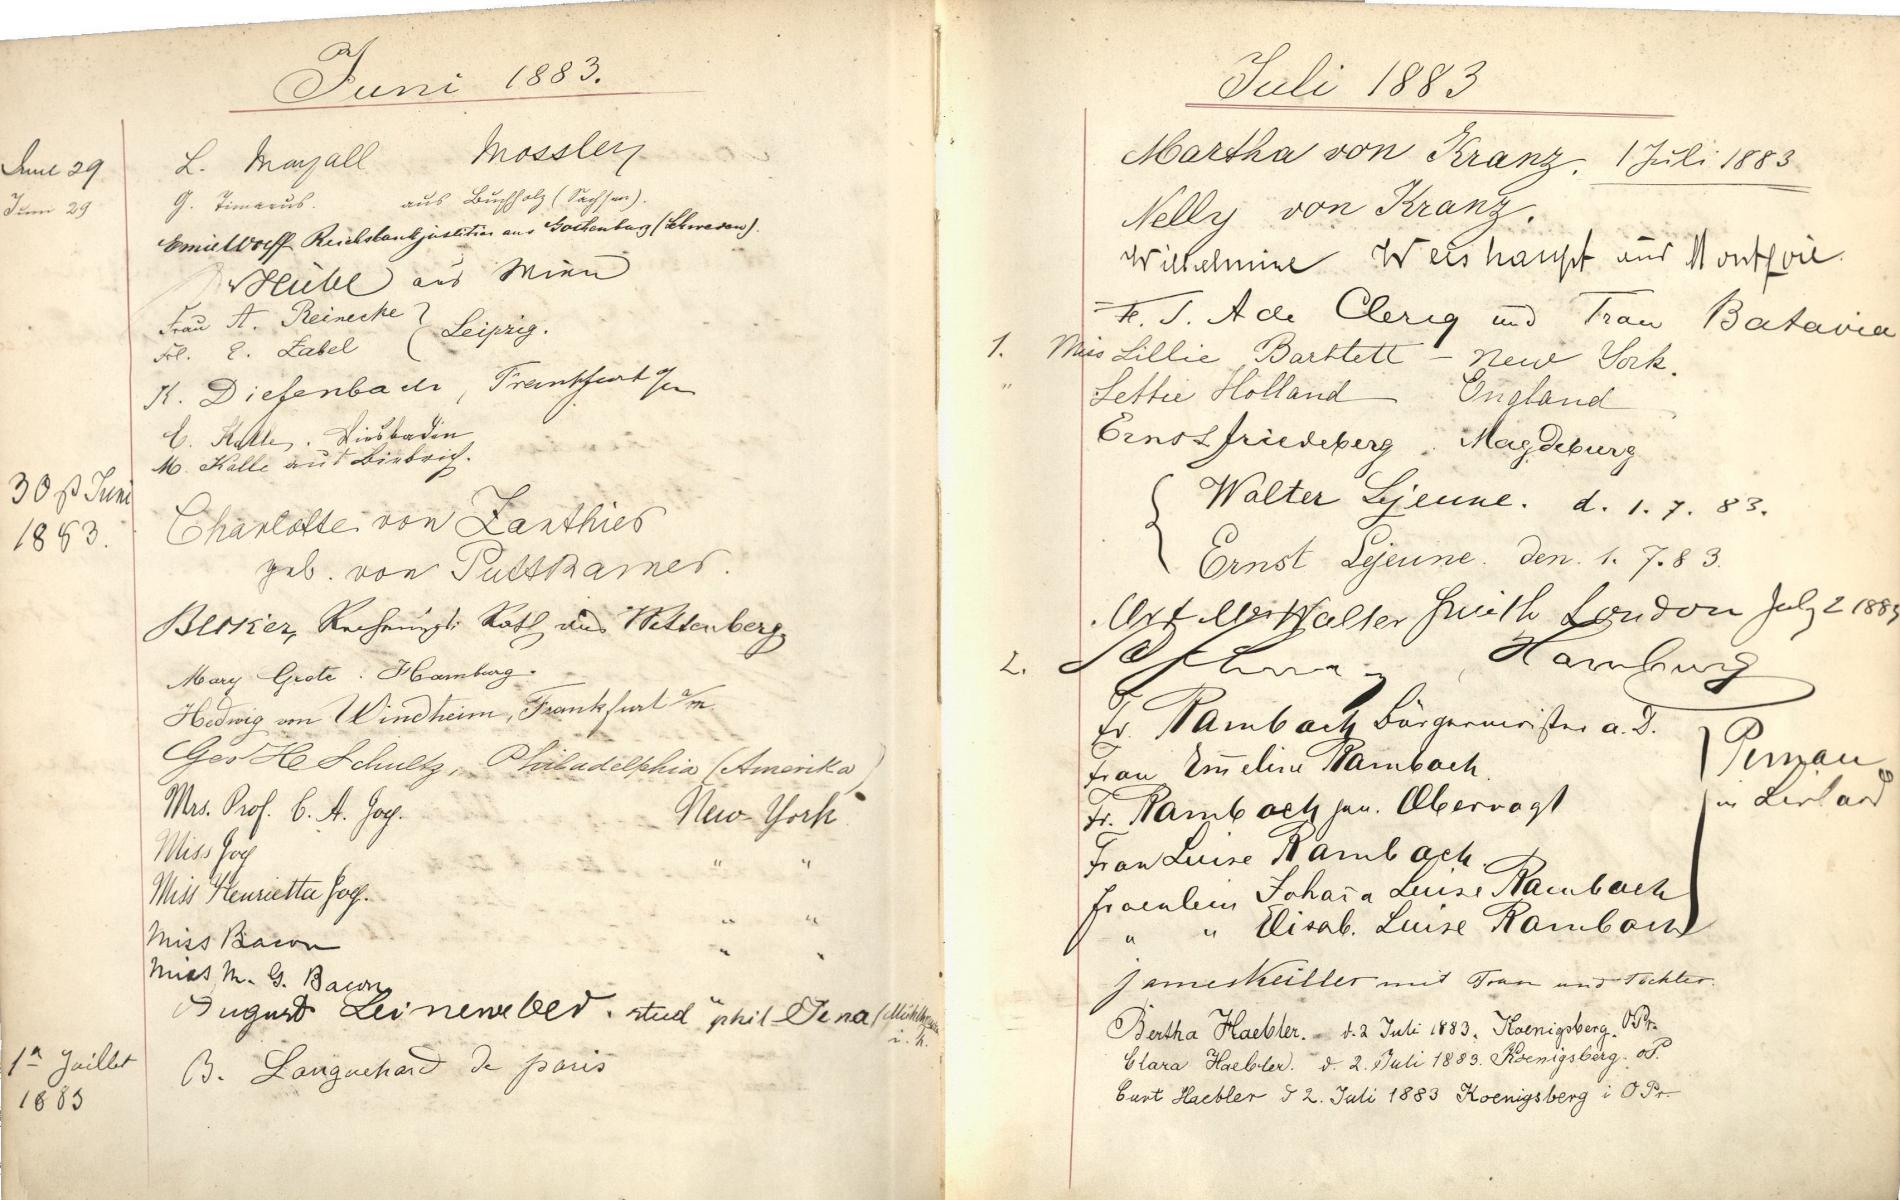 Juni 1883.
June 29 L. Mayall Mossley
Juni 29 G. Timaeus. aus Buchholz (Sachsen).
Emil Wolff Reichsbankjustitiar aus Gothenburg (Schweden).
Hübl aus Wien
Frau A. Reinecke
Frl. E. Zabel Leipzig.
K. Diefenbach, Frankfurt a/m
C. Kalle, Wiesbaden
M. Kalle aus Biebrich.
30 Juni 1883. Charlotte von Zanthier
geb. von Puttkamer.
Becker, Rechnungs Rath aus Wittenberg
Mary Grote. Hamburg.
Hedwig von Windheim, Frankfurt a/m
Geo H Schultz, Philadelphia (Amerika)
Mrs. Prof. C. A. Joy. New-York
Miss Joy " "
Miss Henrietta Joy. " "
Miss Bacon " "
Miss M. G. Bacon
August Leineweber. stud phil Jena
1er Juillet 1883 B. Languehard de paris
Juli 1883
Martha von Kranz. 1 Juli 1883
Nelly von Kranz.
Wilhelmine Weishaupt aus
F. S. A de Clercq und Frau Batavia
1. Miss Lillie Bartlett - New York.
" Lettie Holland England
Ernst Friedeberg. Magdeburg
Walter Lejeune. d. 1. 7. 83.
Ernst Lejeune. den. 1. 7. 83.
Walter Smith London July 2 1883
2. Hamburg
Fr. Rambach Bürgermeister a. D.
Frau Emeline Rambach. Pernau
Fr. Rambach jun. Obervogt in Livland
Frau Luise Rambach.
Fraeulein Johana Luise Rambach
" " Elisab. Luise Rambach
James Keiller mit Frau und Tochter.
Bertha Haebler. d. 2 Juli 1883. Koenigsberg. O Pr.
Clara Haebler. d. 2. Juli 1883. Koenigsberg. o P.
Curt Haebler d 2. Juli 1883 Koenigsberg i O Pr.